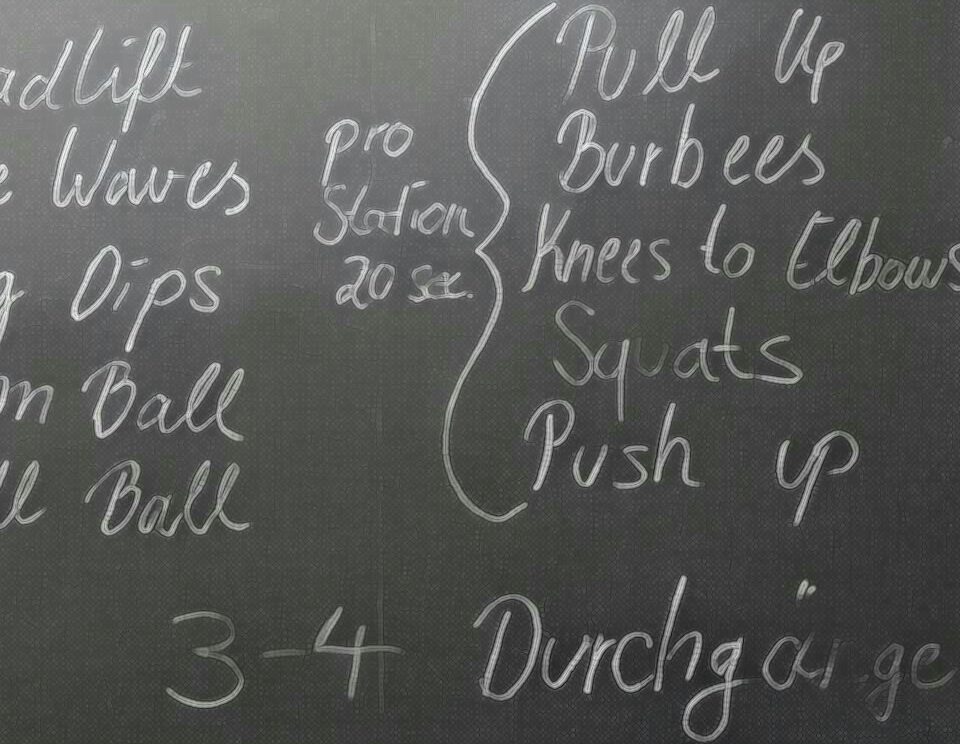 adlift
e Waves
g Dips
m Ball
ll Ball
pro
Station
20 sec.
Pull Up
Burbees
Knees to Elbows
Squats
Push up
3-4 Durchgänge